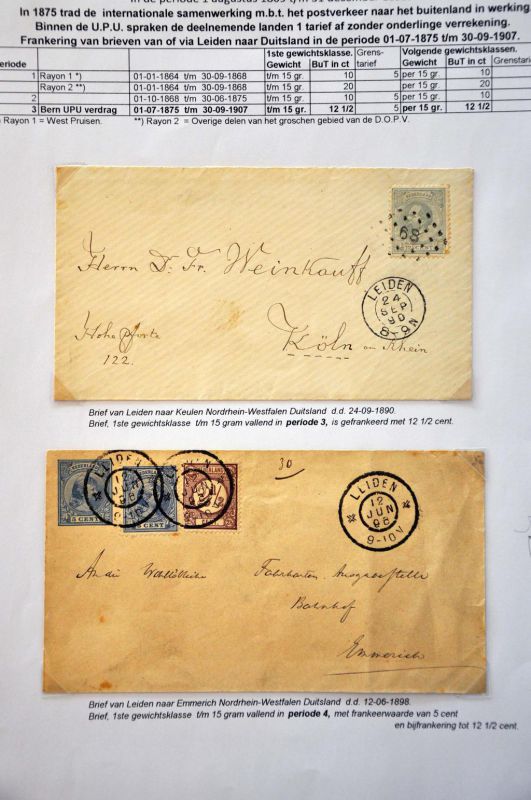 In de periode 1 augustus 1869 t/m 31 dece
In 1875 trad de internationale samenwerking m.b.t. het postverkeer naar het buitenland in werking
Binnen de U.P.U. spraken de deelnemende landen 1 tarief af zonder onderlinge verrekening.
Frankering van brieven van of via Leiden naar Duitsland in de periode 01-07-1875 t/m 30-09-1907.
1ste gewichtsklasse. Grens- Volgende gewichtsklassen.
eriode Gewicht BuT in ct tarief Gewicht BuT in ct Grenstarie
1 Rayon 1 *) 01-01-1864 t/m 30-09-1868 t/m 15 gr. 10 5 per 15 gr. 10
Rayon 2 **) 01-01-1864 t/m 30-09-1868 t/m 15 gr. 20 per 15 gr. 20
2 01-10-1868 t/m 30-06-1875 t/m 15 gr. 10 5 per 15 gr. 10
3 Bern UPU verdrag 01-07-1875 t/m 30-09-1907 t/m 15 gr. 12 1/2 5 per 15 gr. 12 1/2
Rayon 1 = West Pruisen. **) Rayon 2 = Overige delen van het groschen gebied van de D.O.P.V.
68
Herrn D. Fr. Weinkauff
LEIDEN
24
SEP
90
8-9N
Hohepforte
122.
Köln am Rhein
Brief van Leiden naar Keulen Nordrhein-Westfalen Duitsland d.d. 24-09-1890.
Brief, 1ste gewichtsklasse t/m 15 gram vallend in periode 3, is gefrankeerd met 12 1/2 cent.
LEIDEN
12
JUN
98
5 CENT
30
LEIDEN
12
JUN
98
9-10V
An die Wohllöbliche Fahrkarten Ausgabestelle
Bahnhof
Emmerich
Brief van Leiden naar Emmerich Nordrhein-Westfalen Duitsland d.d. 12-06-1898.
Brief, 1ste gewichtsklasse t/m 15 gram vallend in periode 4, met frankeerwaarde van 5 cent
en bijfrankering tot 12 1/2 cent.